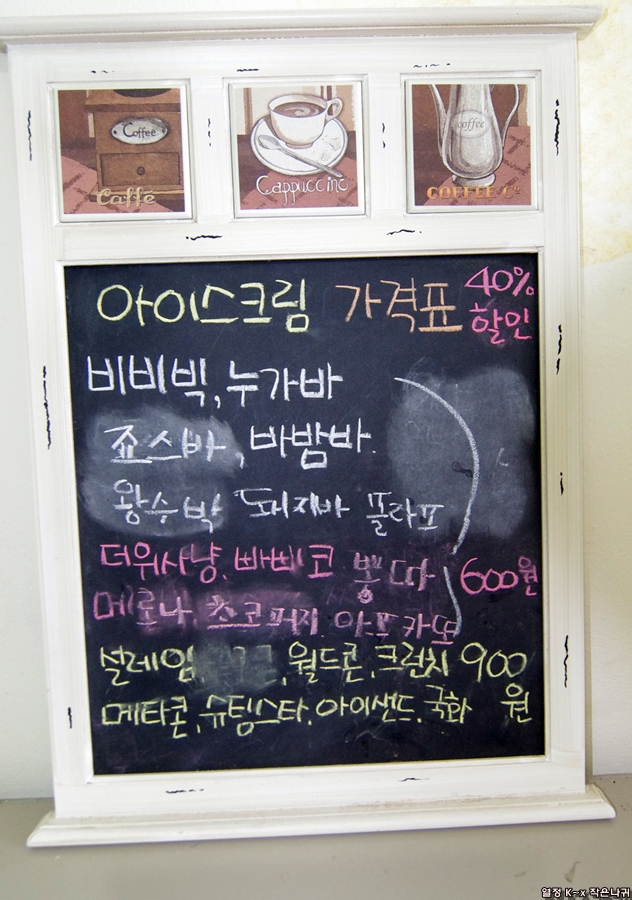 Coffee
Caffé
Cappuccino
coffee
COFFEE
아이스크림 가격표 40% 할인
비비빅, 누가바
죠스바, 바밤바.
왕수박 돼지바
더위사냥. 빠삐코 뽕따 600원
메로나. 초코퍼지. 아포카토
설레임, 월드콘, 크런치 900
메타콘, 슈팅스타. 아이샌드. 국화 원
열정 K-x 작은나귀